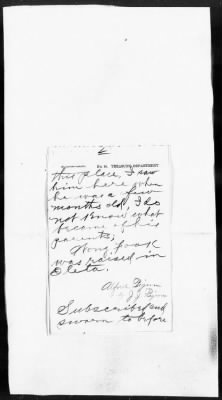 2
No. 24. TREASURY DEPARTMENT
this place, I saw
him here when
he was a few
months old, I do
not know what
became of his
parents;
Wong Look
was raised in
Oleta.
Alfred
by J. J.
Subscribed and
sworn to before